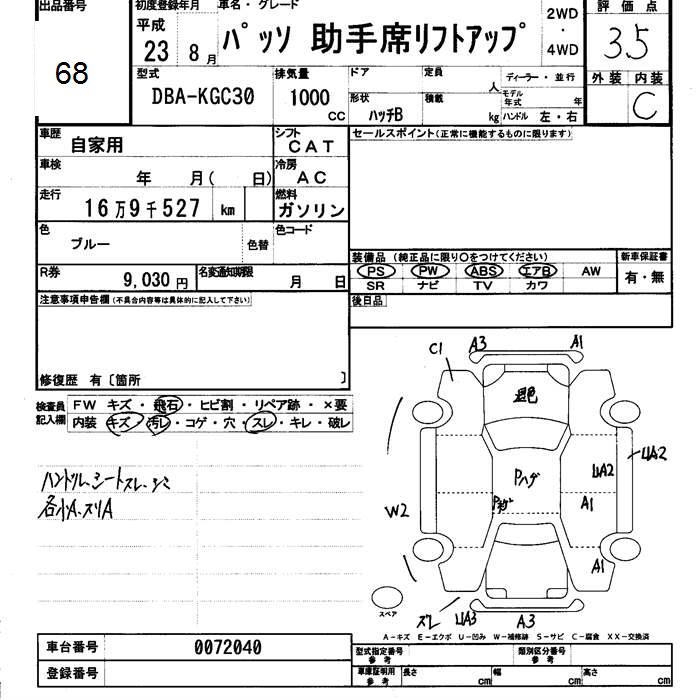 出品番号
68
初度登録年月
平成
23 8 月
車名・グレード
パッソ 助手席リフトアップ
2WD
・
4WD
評価点
3.5
外装 内装
C
型式
DBA-KGC30
排気量
1000
CC
ドア
定員
人
ディーラー・並行
形状
ハッチB
積載
kg
モデル
年式
年
ハンドル 左・右
車歴
自家用
シフト
CAT
セールスポイント(正常に機能するものに限ります)
車検
年 月( 日)
冷房
AC
走行
16万9千527 km
燃料
ガソリン
色
ブルー
色替
色コード
装備品 (純正品に限り○をつけてください)
PS PW ABS エアB AW
SR ナビ TV カワ
新車保証書
有・無
R券
9,030円
名変通知期限
月 日
後日品
注意事項申告欄(不具合内容等は具体的に記入して下さい)
修復歴 有〔箇所 〕
検査員
記入欄
FW キズ・飛石・ヒビ割・リペア跡・×要
内装 キズ・汚レ・コゲ・穴・スレ・キレ・破レ
ハンドル、シートスレ、シミ
各小A、スリA
A3
A1
C1
退色
Pハゲ
山A2
山A2
A1
W2
A1
スペア
スレ 山A3
A3
A-キズ E-エクボ U-凹み W-補修跡 S-サビ C-腐食 XX-交換済
車台番号
0072040
登録番号
型式指定番号
参考
類別区分番号
参考
車庫証明用
参考
長さ
cm
幅
cm
高さ
cm